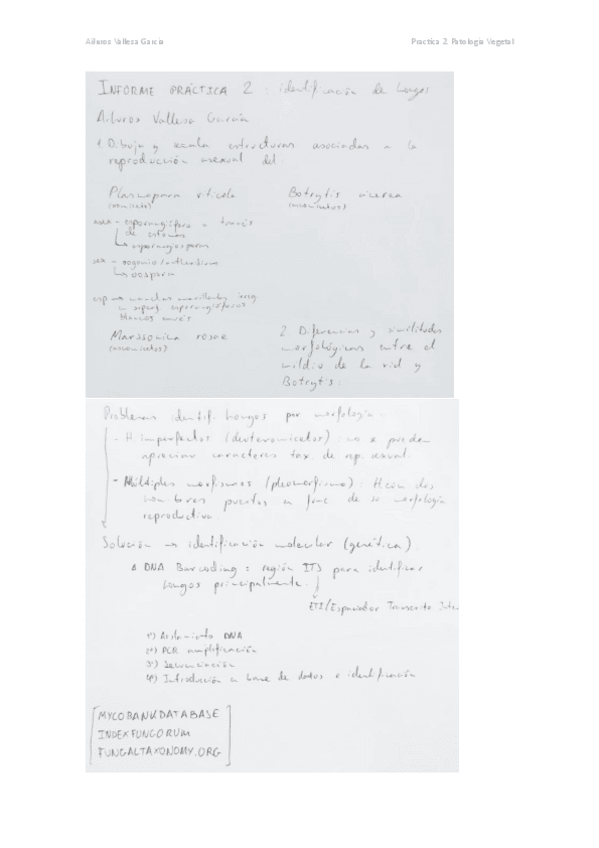 Vallesa García
Practica 2. Patología Vegetal
INFORME PRÁCTICA 2 : identificación de hongos
Vallesa García
1. Dibuja y escala estructuras asociadas a la
reproducción asexual del:
Plasmopara viticola
Botrytis cinerea
(oomiceto)
(ascomicetos)
- esporangióforo a través
de estomas
↳ esporangiosporas
- oogonio/antheridium
↳ oospora
manchas amarillentas irreg.
esporangióforos
blancos envés
Marssonica rosae
(ascomicetos)
2. Diferencias y similitudes
morfológicas entre el
mildiu de la vid y
Botrytis:
Problemas identif. hongos por morfología:
- H. imperfectos (deuteromicetos): no se pueden
apreciar caracteres tax. de rep. sexual.
- Múltiples morfismos (pleomorfismo): H con dos
nombres puestos en func. de su morfología
reproductiva
Solución → identificación molecular (genética).
DNA Barcoding : región ITS para identificar
hongos principalmente.
ETI/Espaciador Transcrito
1º) Aislamiento DNA
2º) PCR amplificación
3º) Secuenciación
4º) Introducción en base de datos e identificación
MYCOBANKDATABASE
INDEXFUNGORUM
FUNGALTAXONOMY.ORG